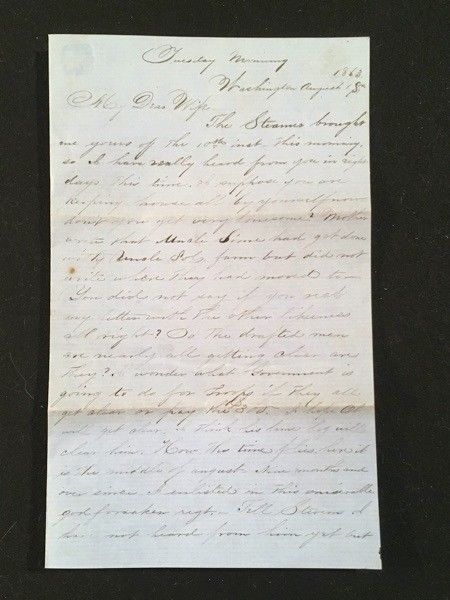 Tuesday Morning
1863
Washington August 18th
My Dear Wife
The Steamer brought
me yours of the 10th inst this morning
so I have really heard from you in eight
days this time. I suppose you are
keeping house all by yourself now
dont you get very lonesome? Mother
wrote that Uncle Sime had got done
with Uncle Sol's farm but did not
write where they had moved to
You did not say if you
my letter with the other likeness
all right? So the drafted men
are nearly all getting clear are
they? I wonder what Government is
going to do for troops if they all
get clear or pay the $
will get clear. I think his lame leg will
clear him. How the time flies here it
is the middle of august. Nine months and
over since I enlisted in this miserable
god forsaken regt. Tell Steven I
have not heard from him yet but